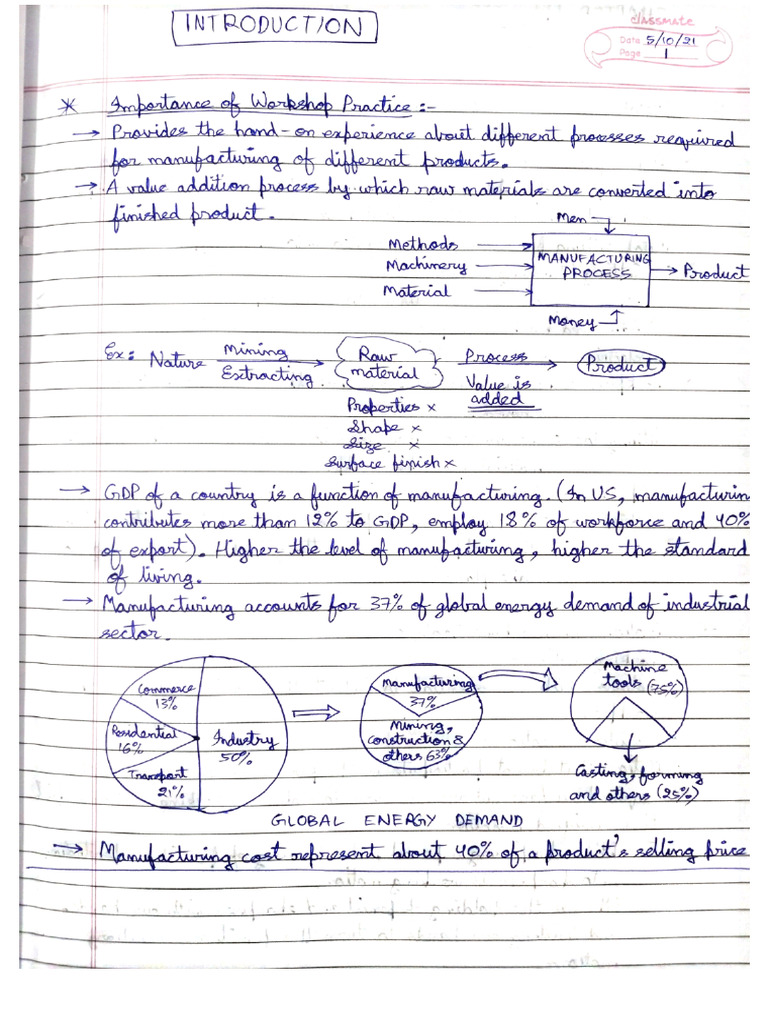 INTRODUCTION
classmate
Date 5/10/21
Page 1
* Importance of Workshop Practice :-
→ Provides the hand-on experience about different processes required
for manufacturing of different products.
→ A value addition process by which raw materials are converted into
finished product.
Men
Methods
Machinery
Material
MANUFACTURING
PROCESS
→ Product
Money
Ex: Nature
Mining
Extracting
Raw
material
Process
Value is
added
Product
Properties ×
Shape ×
Size ×
Surface finish ×
→ GDP of a country is a function of manufacturing. (In US, manufacturin
contributes more than 12% to GDP, employ 18% of workforce and 40%
of export). Higher the level of manufacturing, higher the standard
of living.
→ Manufacturing accounts for 37% of global energy demand of industrial
sector.
Commerce
13%
Residential
16%
Transport
21%
Industry
50%
Manufacturing
37%
Mining,
construction &
others 63%
Machine
tools (75%)
Casting, forming
and others (25%)
GLOBAL ENERGY DEMAND
→ Manufacturing cost represent about 40% of a product's selling price